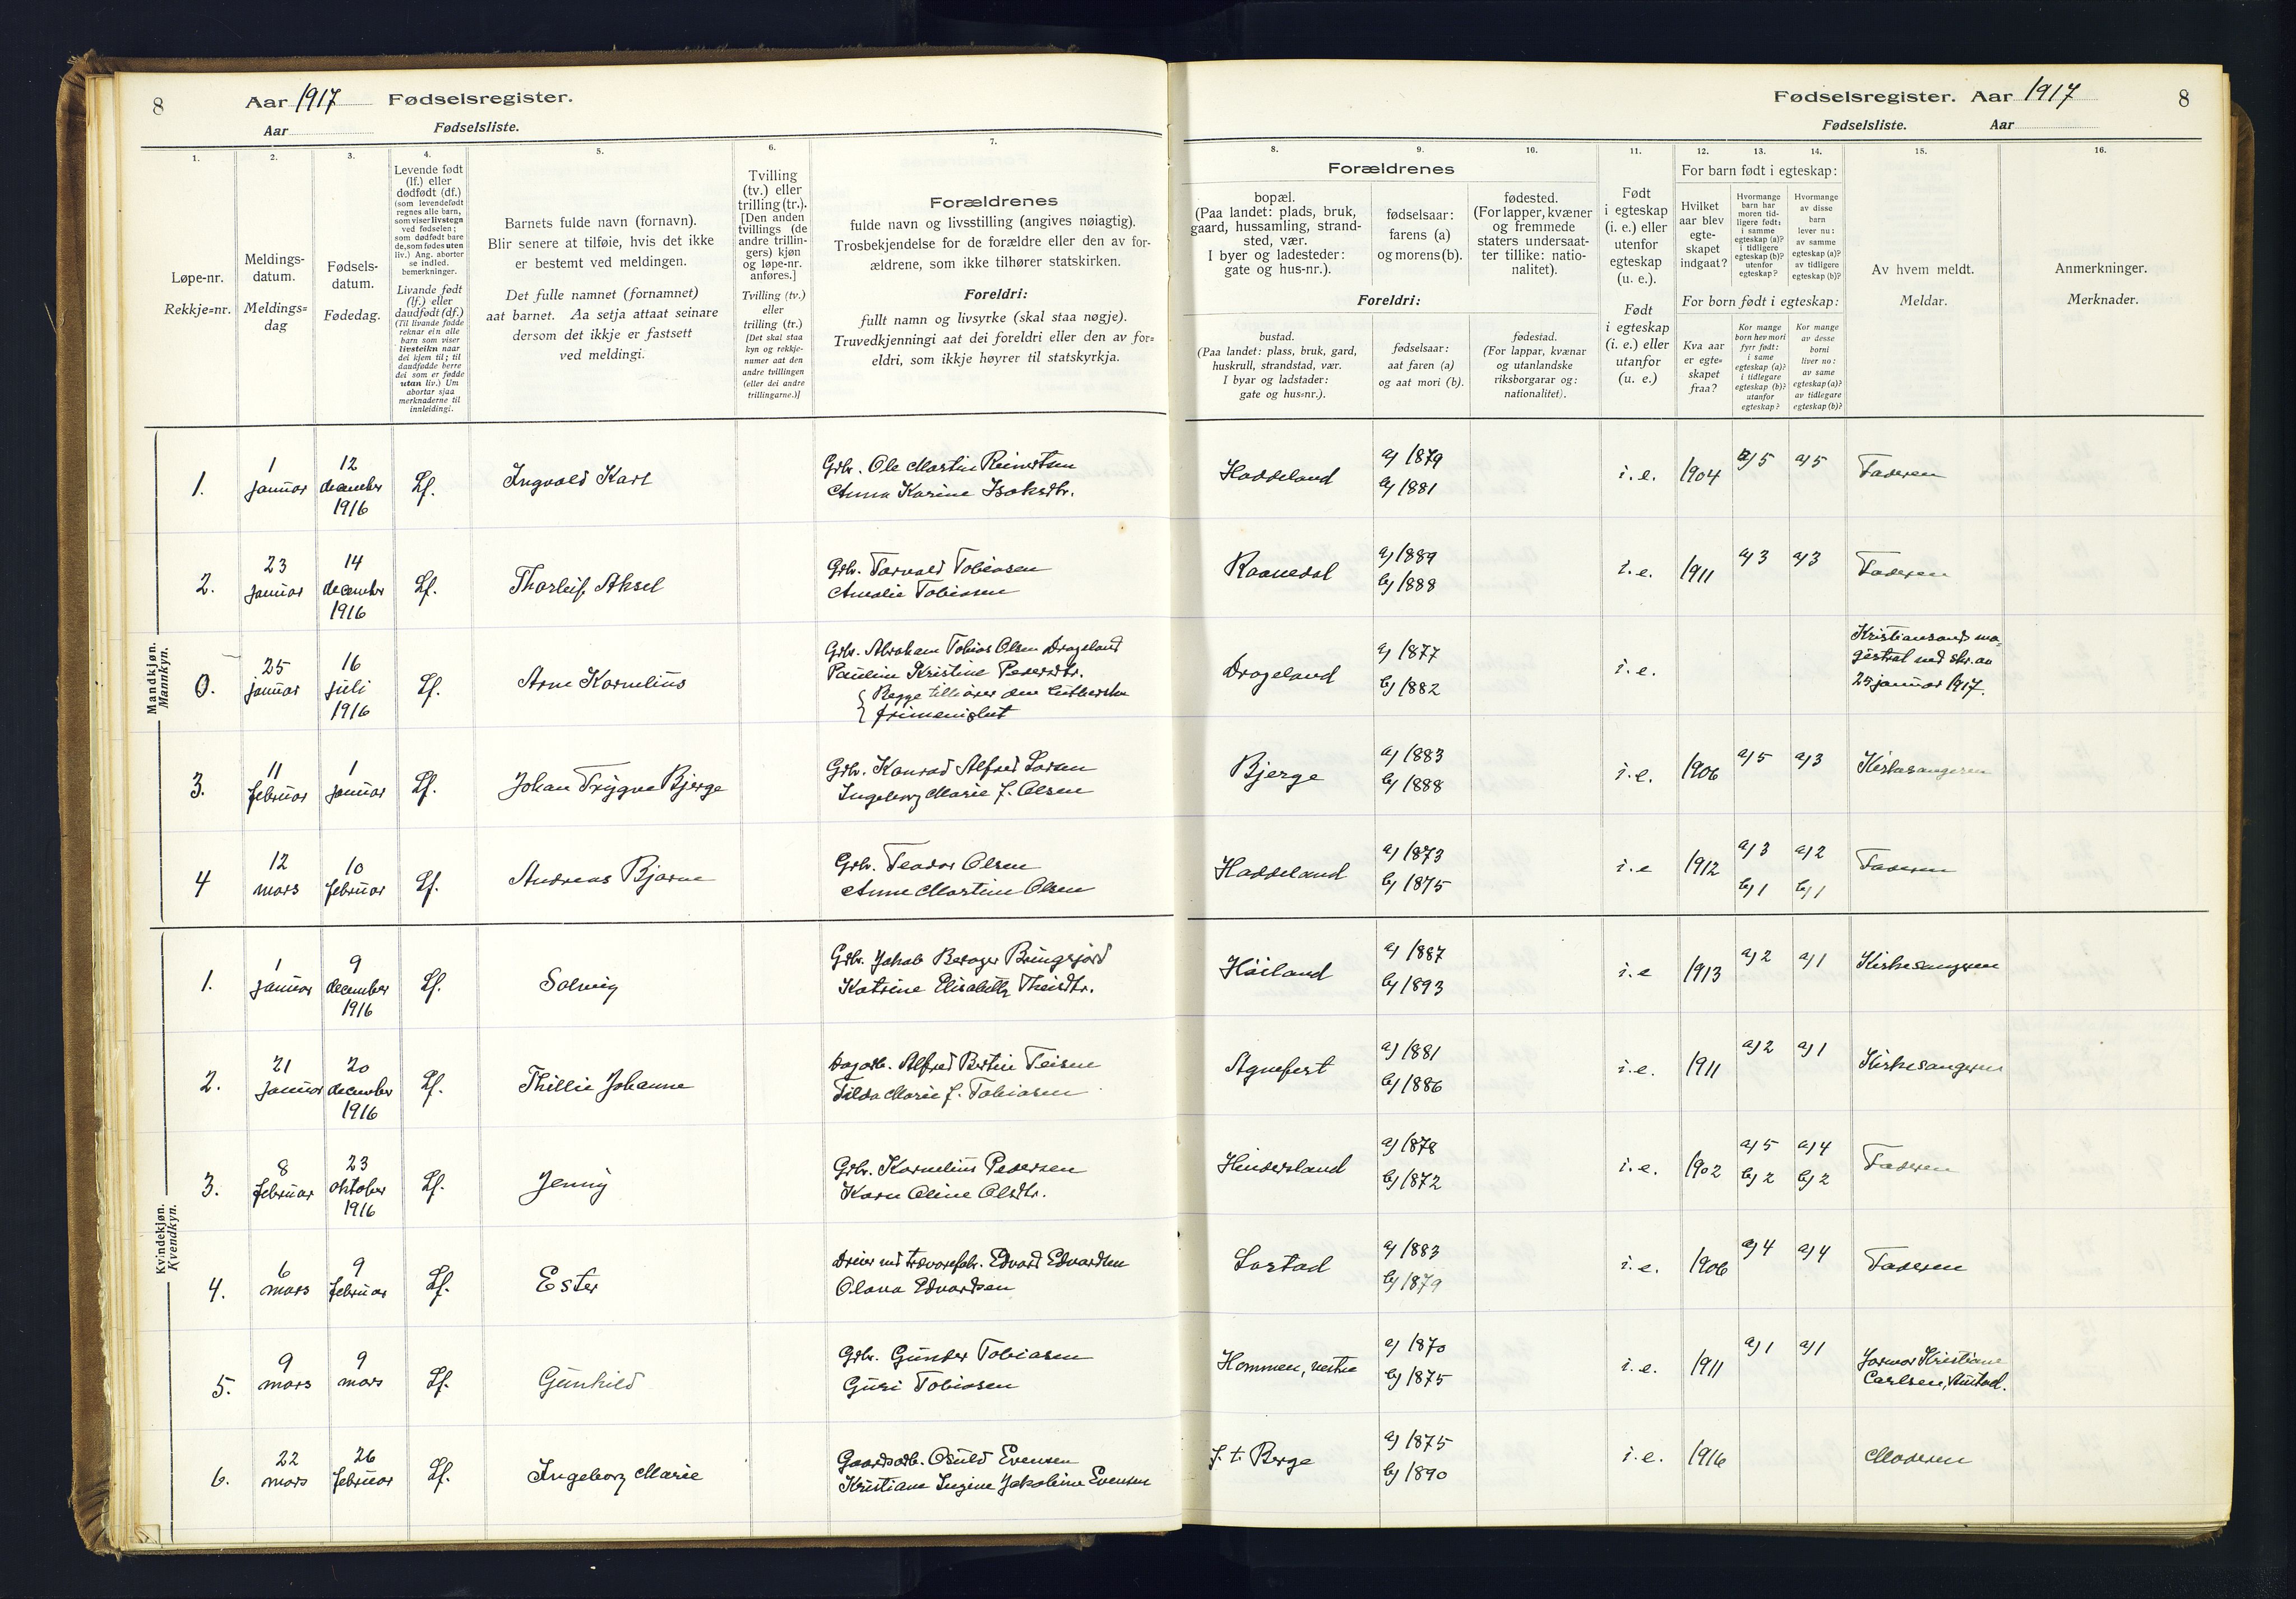 8
Aar 1917 Fødselsregister.
Aar Fødselsliste.
1.
2.
3.
4.
5.
6.
7.
Løpe-nr.
Rekkje=nr.
Meldings-
datum.
Meldings=
dag
Fødsels-
datum.
Fødedag.
Levende født
(lf.) eller
dødfødt (df.)
(som levendefødt
regnes alle barn,
som viser livstegn
ved fødselen;
som dødfødt bare
de, som fødes uten
liv.) Ang. aborter
se indled.
bemerkninger.
Livande født
(lf.) eller
daudfødt (df.)
(Til livande fødde
reknar ein alle
barn som viser
livsteikn naar
dei kjem til; til
daudfødde berre
dei som er fødde
utan liv.) Um
abortar sjaa
merknaderne til
innleidingi.
Barnets fulde navn (fornavn).
Blir senere at tilføie, hvis det ikke
er bestemt ved meldingen.
Det fulle namnet (fornamnet)
aat barnet. Aa setja attaat seinare
dersom det ikkje er fastsett
ved meldingi.
Tvilling
(tv.) eller
trilling (tr.).
[Den anden
tvillings (de
andre trillin-
gers) kjøn
og løpe-nr.
anføres.]
Tvilling (tv.)
eller
trilling (tr.)
[Det skal staa
kyn og rekkje-
numer aat den
andre tvillingen
(eller dei andre
trillingarne.)]
Forældrenes
fulde navn og livsstilling (angives nøiagtig).
Trosbekjendelse for de forældre eller den av for-
ældrene, som ikke tilhører statskirken.
Foreldri:
fullt namn og livsyrke (skal staa nøgje).
Truvedkjenningi aat dei foreldri eller den av for=
eldri, som ikkje høyrer til statskyrkja.
Mandkjøn.
Mannkyn.
1. 1 januar 12 december 1916 Lf. Ingvald Karl
Grbr. Ole Martin Reinertsen
Anna Karine Isaksdtr.
2. 23 januar 14 december 1916 Lf. Thorleif Aksel
Grbr. Torvald Tobiasen
Amalie Tobiasen
0. 25 januar 16 juli 1916 Lf. Arne Kornelius
Grbr. Abraham Tobias Olsen Drageland
Pauline Kristine Pedersdtr.
Begge tilhører den lutherske
frimenighet
3. 11 februar 1 januar Lf. Johan Trygve Bjerge
Grbr. Konrad Alfred Larsen
Ingeborg Marie f. Olsen
4 12 mars 10 februar Lf. Andreas Bjarne
Grbr. Teodor Olsen
Anne Martine Olsen
Kvindekjøn.
Kvendkyn.
1. 1 januar 9 december 1916 Lf. Solveig
Grbr. Jakob Berager Bringsjord
Katrine Elisabeth Theisdtr.
2. 21 januar 20 december 1916 Lf. Thillie Johanne
Dagarb. Alfred Bertin Teisen
Tilda Marie f. Tobiasen
3. 8 februar 23 oktober 1916 Lf. Jenny
Grbr. Kornelius Pedersen
Karn Oline Olsdtr.
4. 6 mars 9 februar Lf. Ester
Driver med trævarefabr. Edvard Edvardsen
Olava Edvardsen
5. 9 mars 9 mars Lf. Gunhild
Grbr. Gunder Tobiasen
Guri Tobiasen
6. 22 mars 26 februar Lf. Ingeborg Marie
Gaardsarb. Osuld Evensen
Kristiane Ingine Jakobine Evensen
Fødselsregister. Aar 1917 8
Fødselsliste. Aar
8.
9.
10.
11.
12.
13.
14.
15.
16.
Forældrenes
bopæl.
(Paa landet: plads, bruk,
gaard, hussamling, strand-
sted, vær.
I byer og ladesteder:
gate og hus-nr.).
fødselsaar:
farens (a)
og morens (b).
fødested.
(For lapper, kvæner
og fremmede
staters undersaat-
ter tillike: natio-
nalitet).
Foreldri:
bustad.
(Paa landet: plass, bruk, gard,
huskrull, strandstad, vær.
I byar og ladstader:
gate og hus=nr.).
fødselsaar:
aat faren (a)
og aat mori (b).
fødestad.
(For lappar, kvænar
og utanlandske
riksborgarar og:
nationalitet).
Født
i egteskap
(i. e.) eller
utenfor
egteskap
(u. e.).
Født
i egteskap
(i. e.) eller
utanfor
(u. e.)
For barn født i egteskap:
Hvilket
aar blev
egte-
skapet
indgaat?
Hvormange
barn har
moren tid-
ligere født:
i samme
egteskap (a)?
i tidligere
egteskap (b)?
utenfor
egteskap?
Hvormange
av disse
barn
lever nu:
av samme
egteskap (a)?
av tidligere
egteskap (b)?
For born født i egteskap:
Kva aar
er egte=
skapet
fraa?
Kor mange
born hev mori
fyrr født:
i same
egteskap (a)?
i tidlegare
egteskap (b)?
utanfor
egteskap?
Kor mange
av desse
borni
liver no:
av same
egteskap (a)?
av tidlegare
egteskap (b)?
Av hvem meldt.
Meldar.
Anmerkninger.
Merknader.
Haddeland a) 1879 b) 1881 i. e. 1904 a) 5 a) 5 Faderen
Raanedal a) 1889 b) 1888 i. e. 1911 a) 3 a) 3 Faderen
Drageland a) 1877 b) 1882 i. e.
Kristiansands ma-
gistrat ved skr. av
25 januar 1917.
Bjerge a) 1883 b) 1888 i. e. 1906 a) 5 a) 3 Kirkesangeren
Haddeland a) 1873 b) 1875 i. e 1912 a) 3 b) 1 a) 2 b) 1 Faderen
Høiland a) 1887 b) 1893 i. e 1913 a) 2 a) 1 Kirkesangeren
Agnefest a) 1881 b) 1886 i. e. 1911 a) 2 a) 1 Kirkesangeren
Hindersland a) 1878 b) 1872 i. e. 1902 a) 5 b) 2 a) 4 b) 2 Faderen
Lastad a) 1883 b) 1879 i. e. 1906 a) 4 a) 4 Faderen
Hommen, vestre a) 1870 b) 1875 i. e. 1911 a) 1 a) 1
Jormor Kristiane
Carlsen, Austad.
f. t. Berge a) 1875 b) 1890 i. e. 1916 Moderen